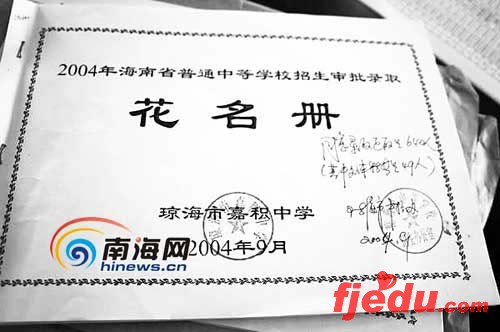 2004年海南省普通中等学校招生审批录取
花名册
同意录取
琼海市嘉积中学
2004年9月
南海网
hinews.cn
fjedu.com.cn